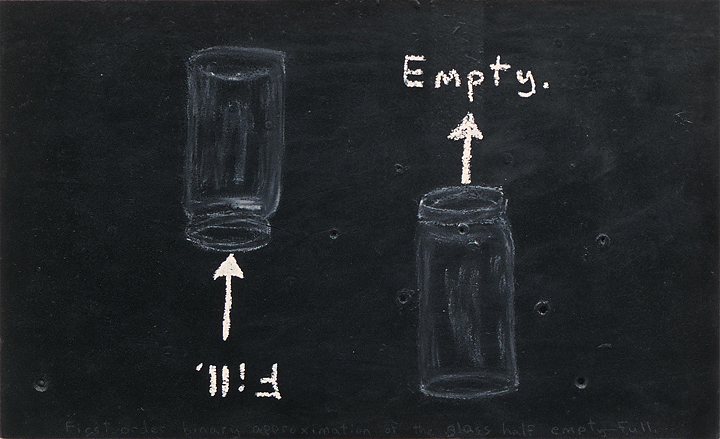 Empty.
Fill.
First order binary aproximation of the glass half empty-full.